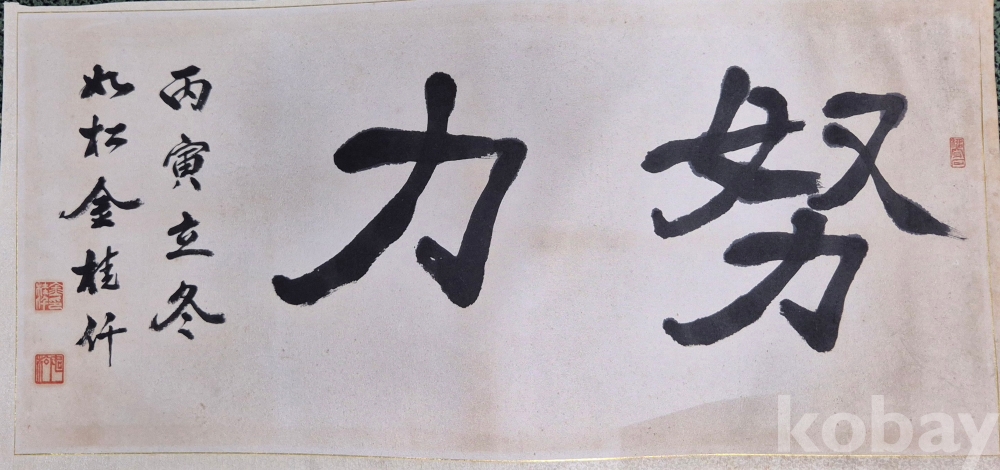 努力
丙寅立冬
如松金桂仟
kobay